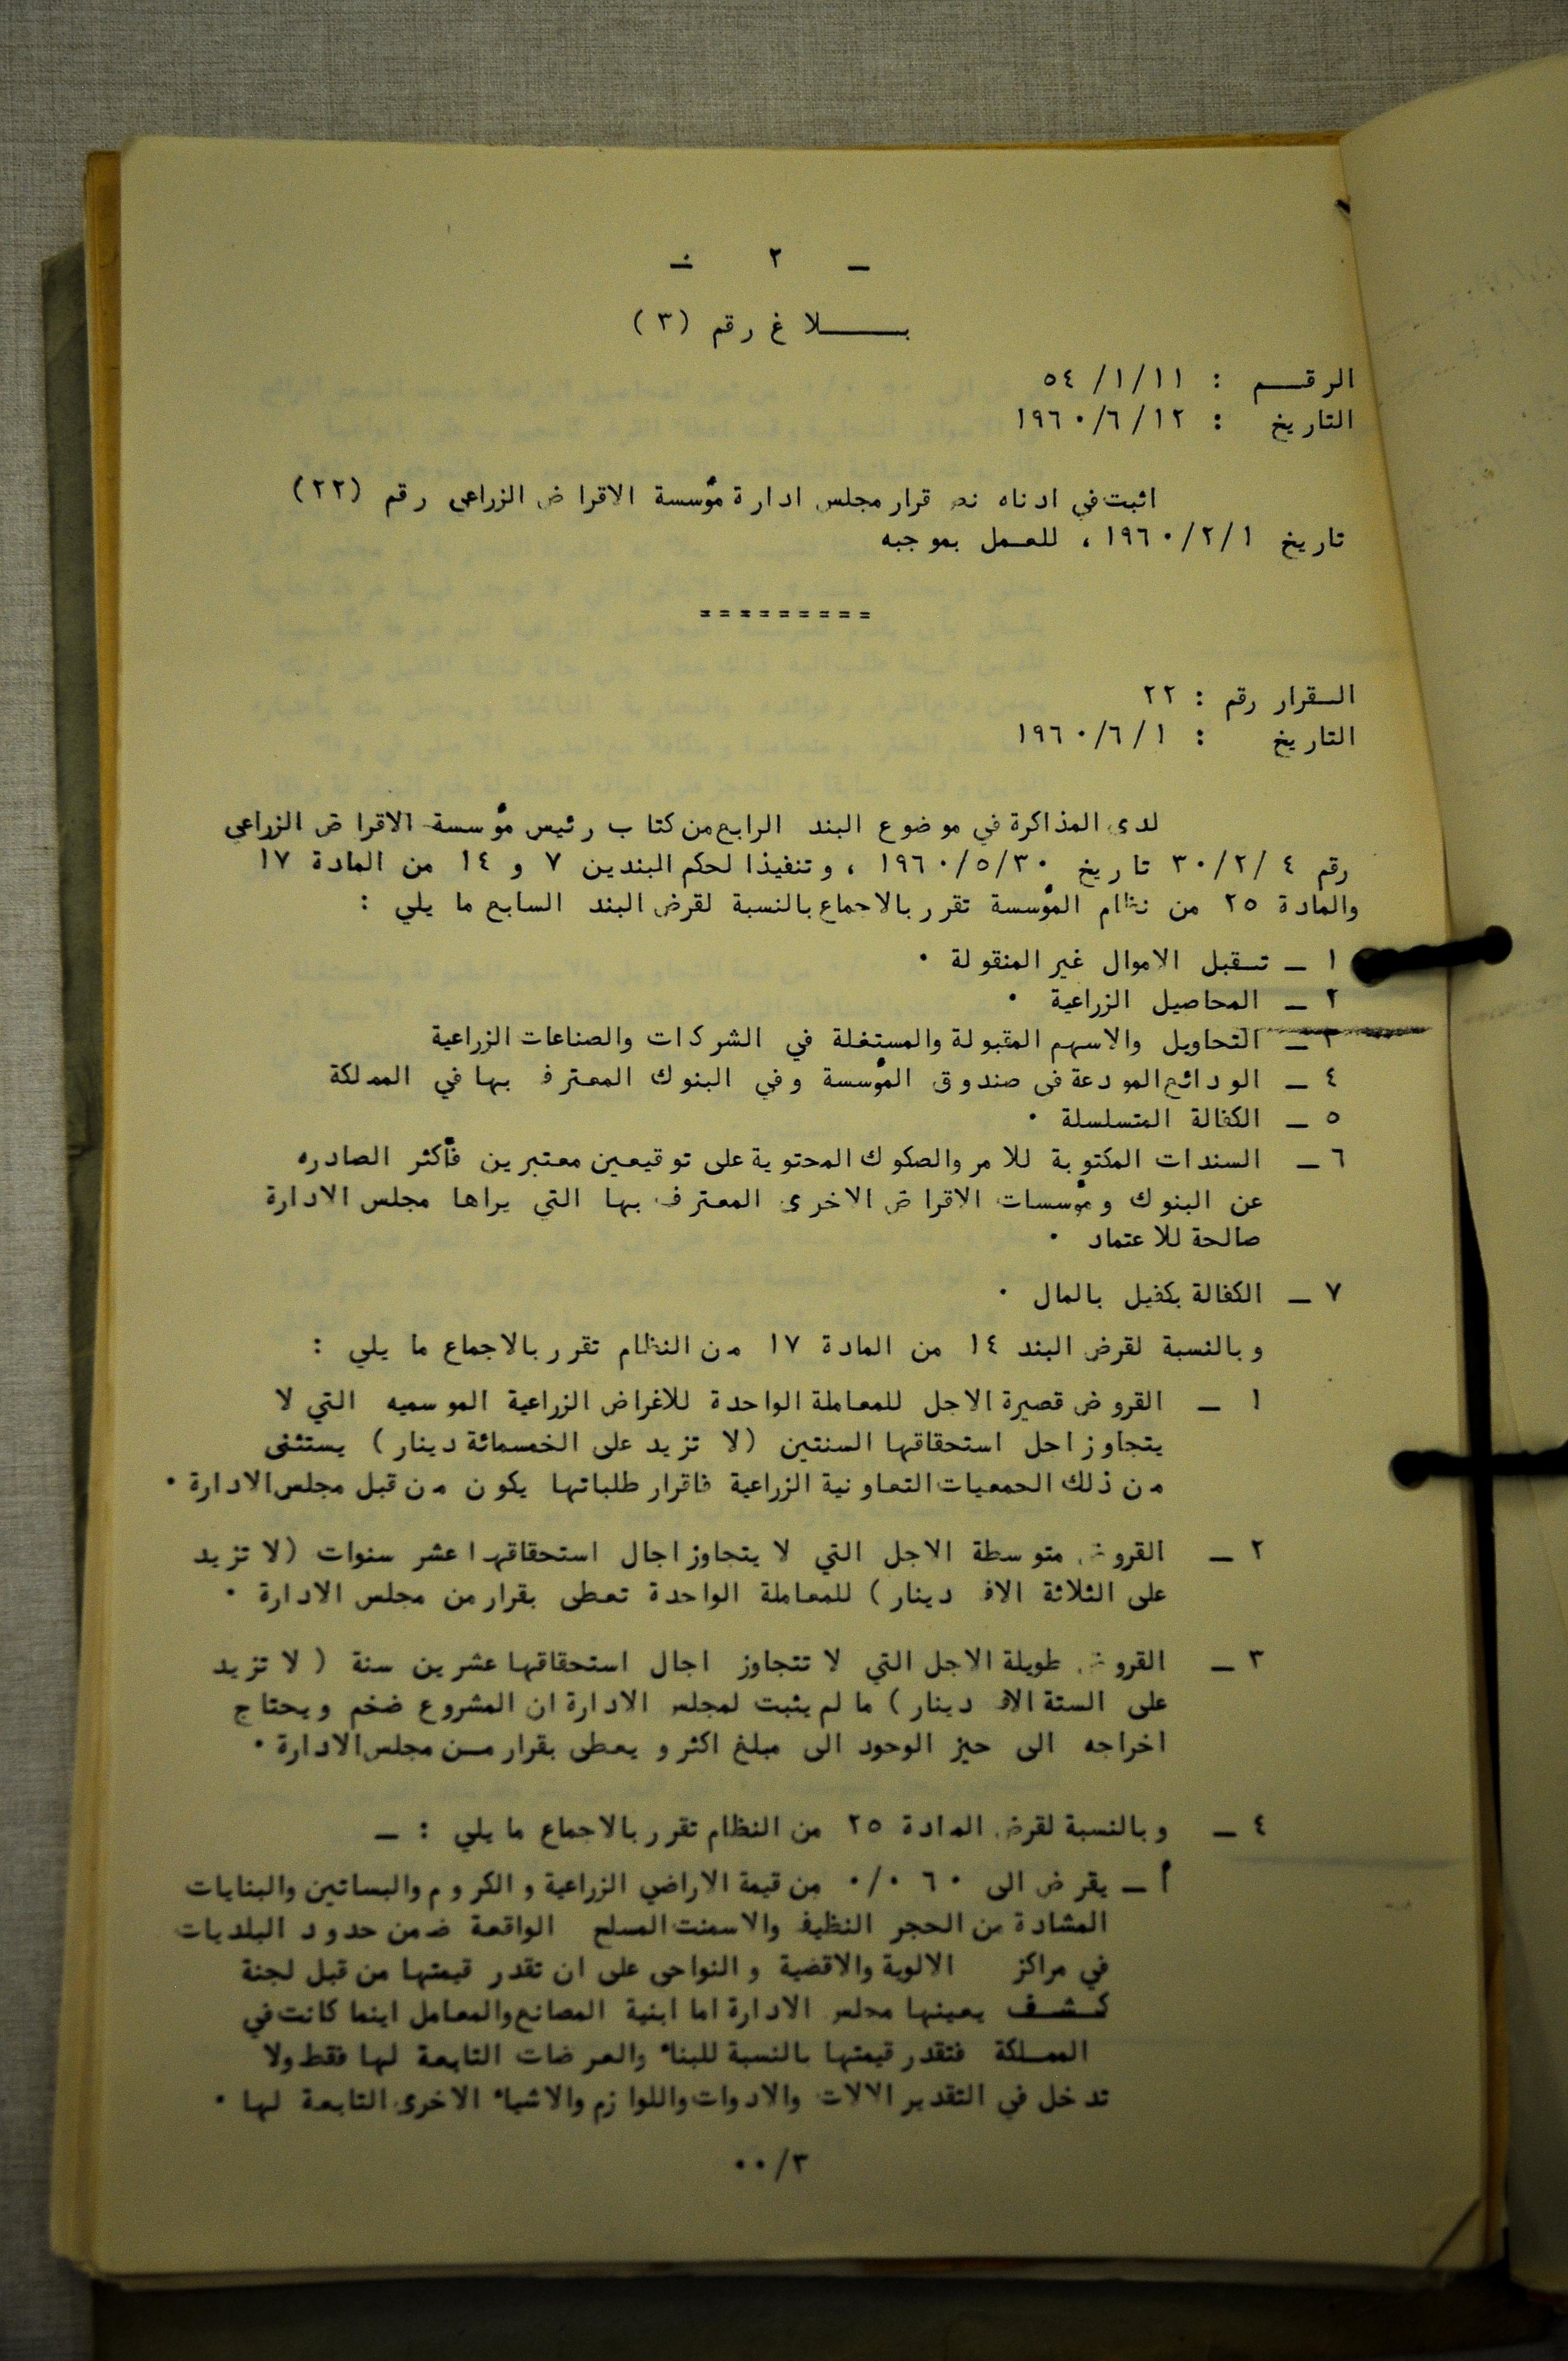 - ٢ -
بـــلاغ رقم (٣)
الرقـــم : ١١/١/ ٥٤
التاريخ : ١٩٦٠/٦/١٢
اثبت في ادناه نص قرار مجلس ادارة مؤسسة الاقراض الزراعي رقم (٢٢)
تاريخ ١٩٦٠/٢/١ ، للعمل بموجبه
=========
القرار رقم : ٢٢
التاريخ : ١٩٦٠/٦/١
لدى المذاكرة في موضوع البند الرابع من كتاب رئيس مؤسسة الاقراض الزراعي
رقم ٣٠/٢/٤ تاريخ ١٩٦٠/٥/٣٠ ، وتنفيذا لحكم البندين ٧ و ١٤ من المادة ١٧
والمادة ٢٥ من نظام المؤسسة تقرر بالاجماع بالنسبة لقرض البند السابع ما يلي :
١ - تقبل الاموال غير المنقولة .
٢ - المحاصيل الزراعية .
٣ - التحاويل والاسهم المقبولة والمستغلة في الشركات والصناعات الزراعية
٤ - الودائع المودعة في صندوق المؤسسة وفي البنوك المعترف بها في المملكة
٥ - الكفالة المتسلسلة .
٦ - السندات المكتوبة للامر والصكوك المحتوية على توقيعين معتبرين فأكثر الصادره
عن البنوك ومؤسسات الاقراض الاخرى المعترف بها التي يراها مجلس الادارة
صالحة للاعتماد .
٧ - الكفالة بكفيل بالمال .
وبالنسبة لقرض البند ١٤ من المادة ١٧ من النظام تقرر بالاجماع ما يلي :
١ - القروض قصيرة الاجل للمعاملة الواحدة للاغراض الزراعية الموسميه التي لا
يتجاوز اجل استحقاقها السنتين (لا تزيد على الخمسمائة دينار) يستثنى
من ذلك الجمعيات التعاونية الزراعية فاقرار طلباتها يكون من قبل مجلس الادارة .
٢ - القروض متوسطة الاجل التي لا يتجاوز اجال استحقاقها عشر سنوات (لا تزيد
على الثلاثة الاف دينار) للمعاملة الواحدة تعطى بقرار من مجلس الادارة .
٣ - القروض طويلة الاجل التي لا تتجاوز اجال استحقاقها عشرين سنة ( لا تزيد
على الستة الاف دينار) ما لم يثبت لمجلس الادارة ان المشروع ضخم ويحتاج
اخراجه الى حيز الوجود الى مبلغ اكثر ويعطى بقرار من مجلس الادارة .
٤ - وبالنسبة لقرض المادة ٢٥ من النظام تقرر بالاجماع ما يلي : -
أ - يقرض الى ٦٠ ٠/٠ من قيمة الاراضي الزراعية والكروم والبساتين والبنايات
المشادة من الحجر النظيف والاسمنت المسلح الواقعة ضمن حدود البلديات
في مراكز الالوية والاقضية والنواحي على ان تقدر قيمتها من قبل لجنة
كشف يعينها مجلس الادارة اما ابنية المصانع والمعامل اينما كانت في
المملكة فتقدر قيمتها بالنسبة للبناء والعرضات التابعة لها فقط ولا
تدخل في التقدير الالات والادوات واللوازم والاشياء الاخرى التابعة لها .
٠٠/٣